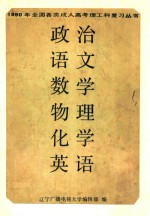 1990年全国各类成人高考理工科复习丛书
政治
语文
数学
物理
化学
英语
辽宁广播电视大学编辑部 编